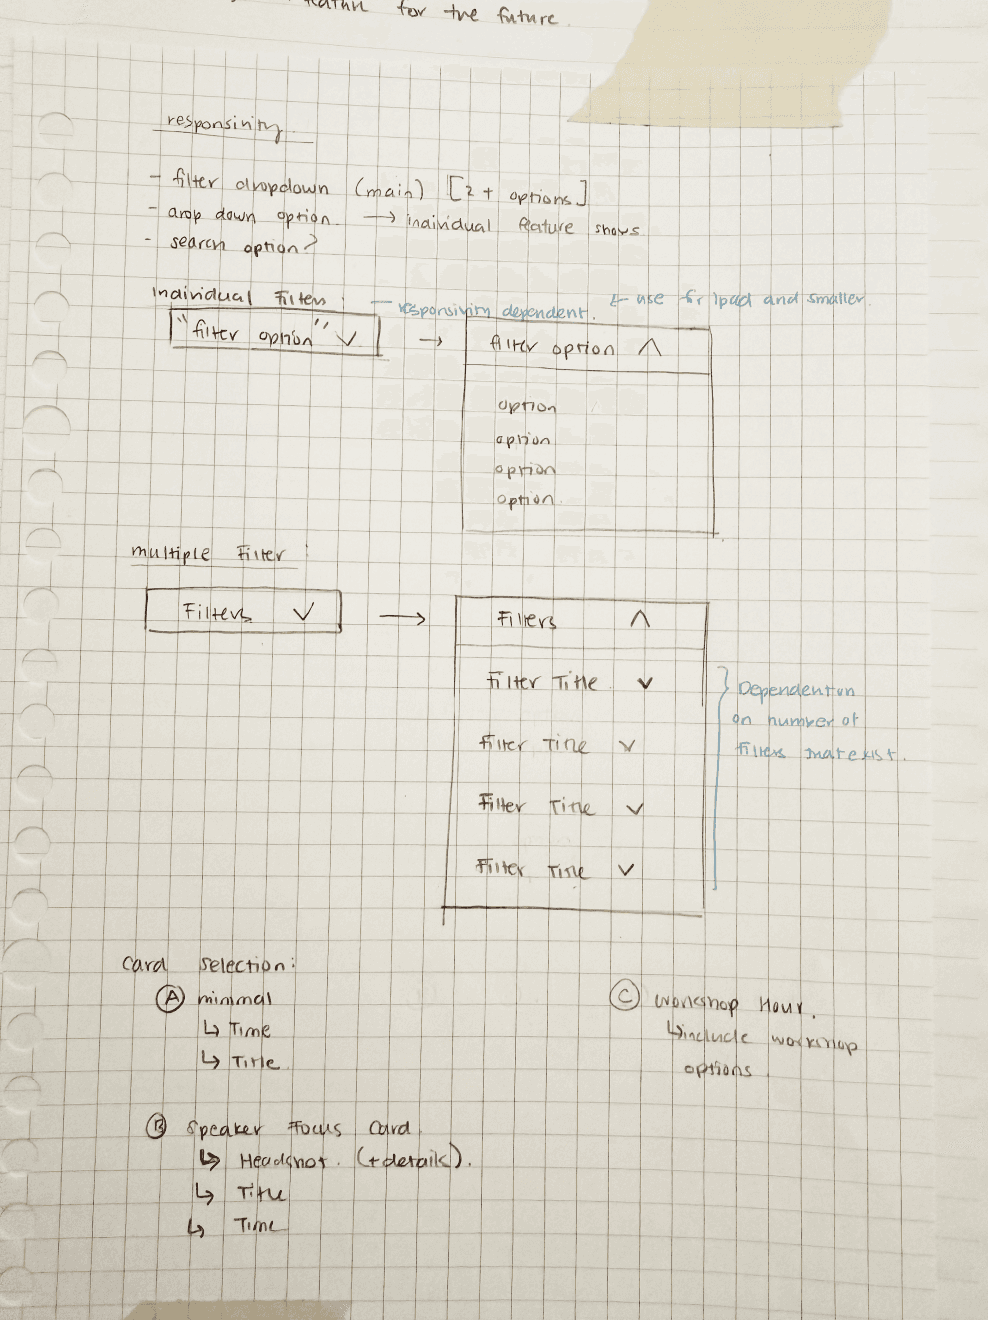 for the future.
responsivity
- filter dropdown (main) [2+ options]
- drop down option → individual feature shows
- search option?
Individual Filters :
- responsivity dependent.
← use for Ipad and smaller.
"filter option" ∨ →
filter option ∧
option
option
option
option
multiple Filter :
Filters ∨ →
Filters ∧
Filter Title ∨
Filter Title ∨
Filter Title ∨
Filter Title ∨
on number of
filters that exist.
Card Selection:
A minimal
↳ Time
↳ Title
B Speaker Focus Card
↳ Headshot. (+details).
↳ Title
↳ Time
C Workshop Hour.
↳ include workshop
options